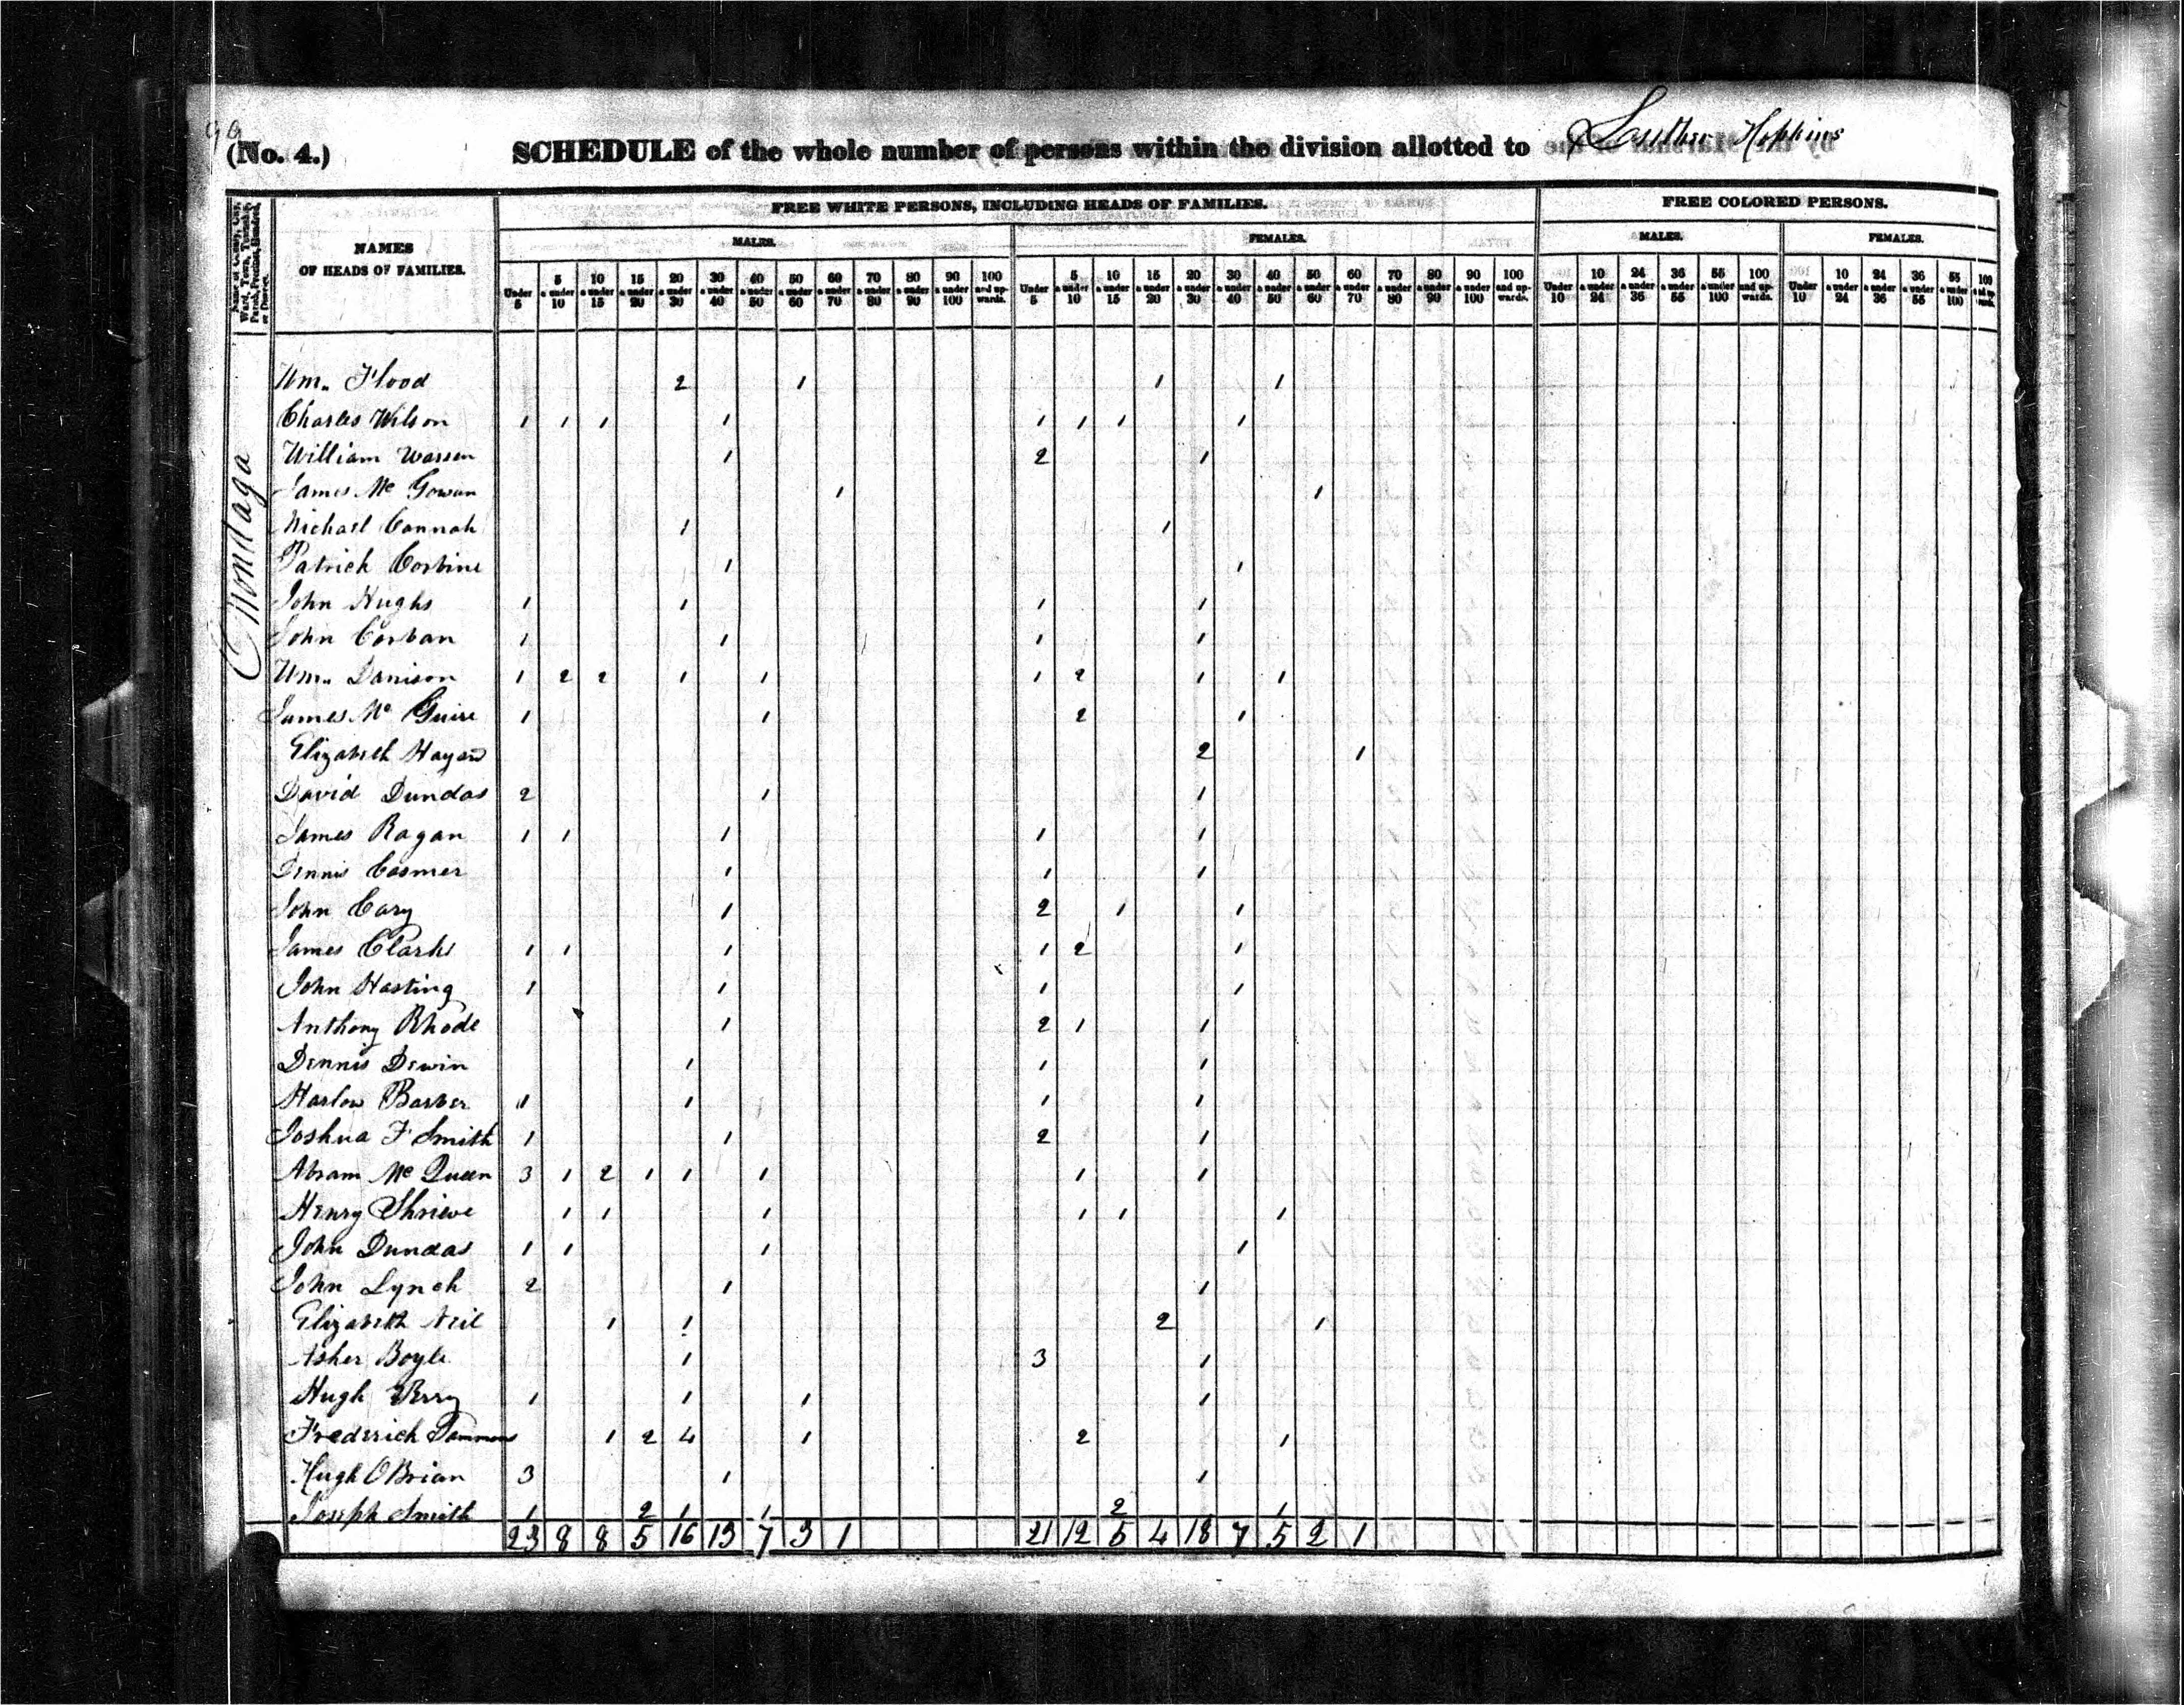 99
(No. 4.) SCHEDULE of the whole number of persons within the division allotted to Luther Hopkins
Name of County, City, Ward, Town, Township, Parish, Precinct, Hundred, or District.
NAMES OF HEADS OF FAMILIES.
FREE WHITE PERSONS, INCLUDING HEADS OF FAMILIES. FREE COLORED PERSONS.
MALES. FEMALES. MALES. FEMALES.
Under 5 5 & under 10 10 & under 15 15 & under 20 20 & under 30 30 & under 40 40 & under 50 50 & under 60 60 & under 70 70 & under 80 80 & under 90 90 & under 100 100 and upwards. Under 5 5 & under 10 10 & under 15 15 & under 20 20 & under 30 30 & under 40 40 & under 50 50 & under 60 60 & under 70 70 & under 80 80 & under 90 90 & under 100 100 and upwards. Under 10 10 & under 24 24 & under 36 36 & under 55 55 & under 100 100 and upwards. Under 10 10 & under 24 24 & under 36 36 & under 55 55 & under 100 100 and upwards.
Onondaga
Wm. Flood 2 1 1 1
Charles Wilson 1 1 1 1 1 1 1 1
William Warren 1 2 1
James Mc Gowan 1 1
Michael Cannah 1 1
Patrick Corbine 1 1
John Hughs 1 1 1 1
John Corban 1 1 1 1
Wm. Danison 1 2 2 1 1 1 2 1 1
James Mc Guire 1 1 2 1
Elizabeth 2 1
David Dundas 2 1 1
James Ragan 1 1 1 1 1
Dennis Cosmer 1 1 1
John Cary 1 2 1 1
James Clark 1 1 1 1 2 1
John Hasting 1 1 1 1
Anthony Rhode 1 2 1 1
Dennis Dewin 1 1 1
Harlow Barber 1 1 1 1
Joshua F Smith 1 1 2 1
Abram Mc Queen 3 1 2 1 1 1 1 1
Henry Shrieve 1 1 1 1 1 1
John Dundas 1 1 1 1
John Lynch 2 1 1
Elizabeth Neil 1 1 2 1
Asher Boyle 1 3 1
Hugh 1 1 1 1
Frederick 1 2 4 1 2 1
Hugh O Brian 3 1 1
Joseph Smith 1 2 1 1 2 1
23 8 8 5 16 13 7 3 1 21 12 5 4 18 7 5 2 1